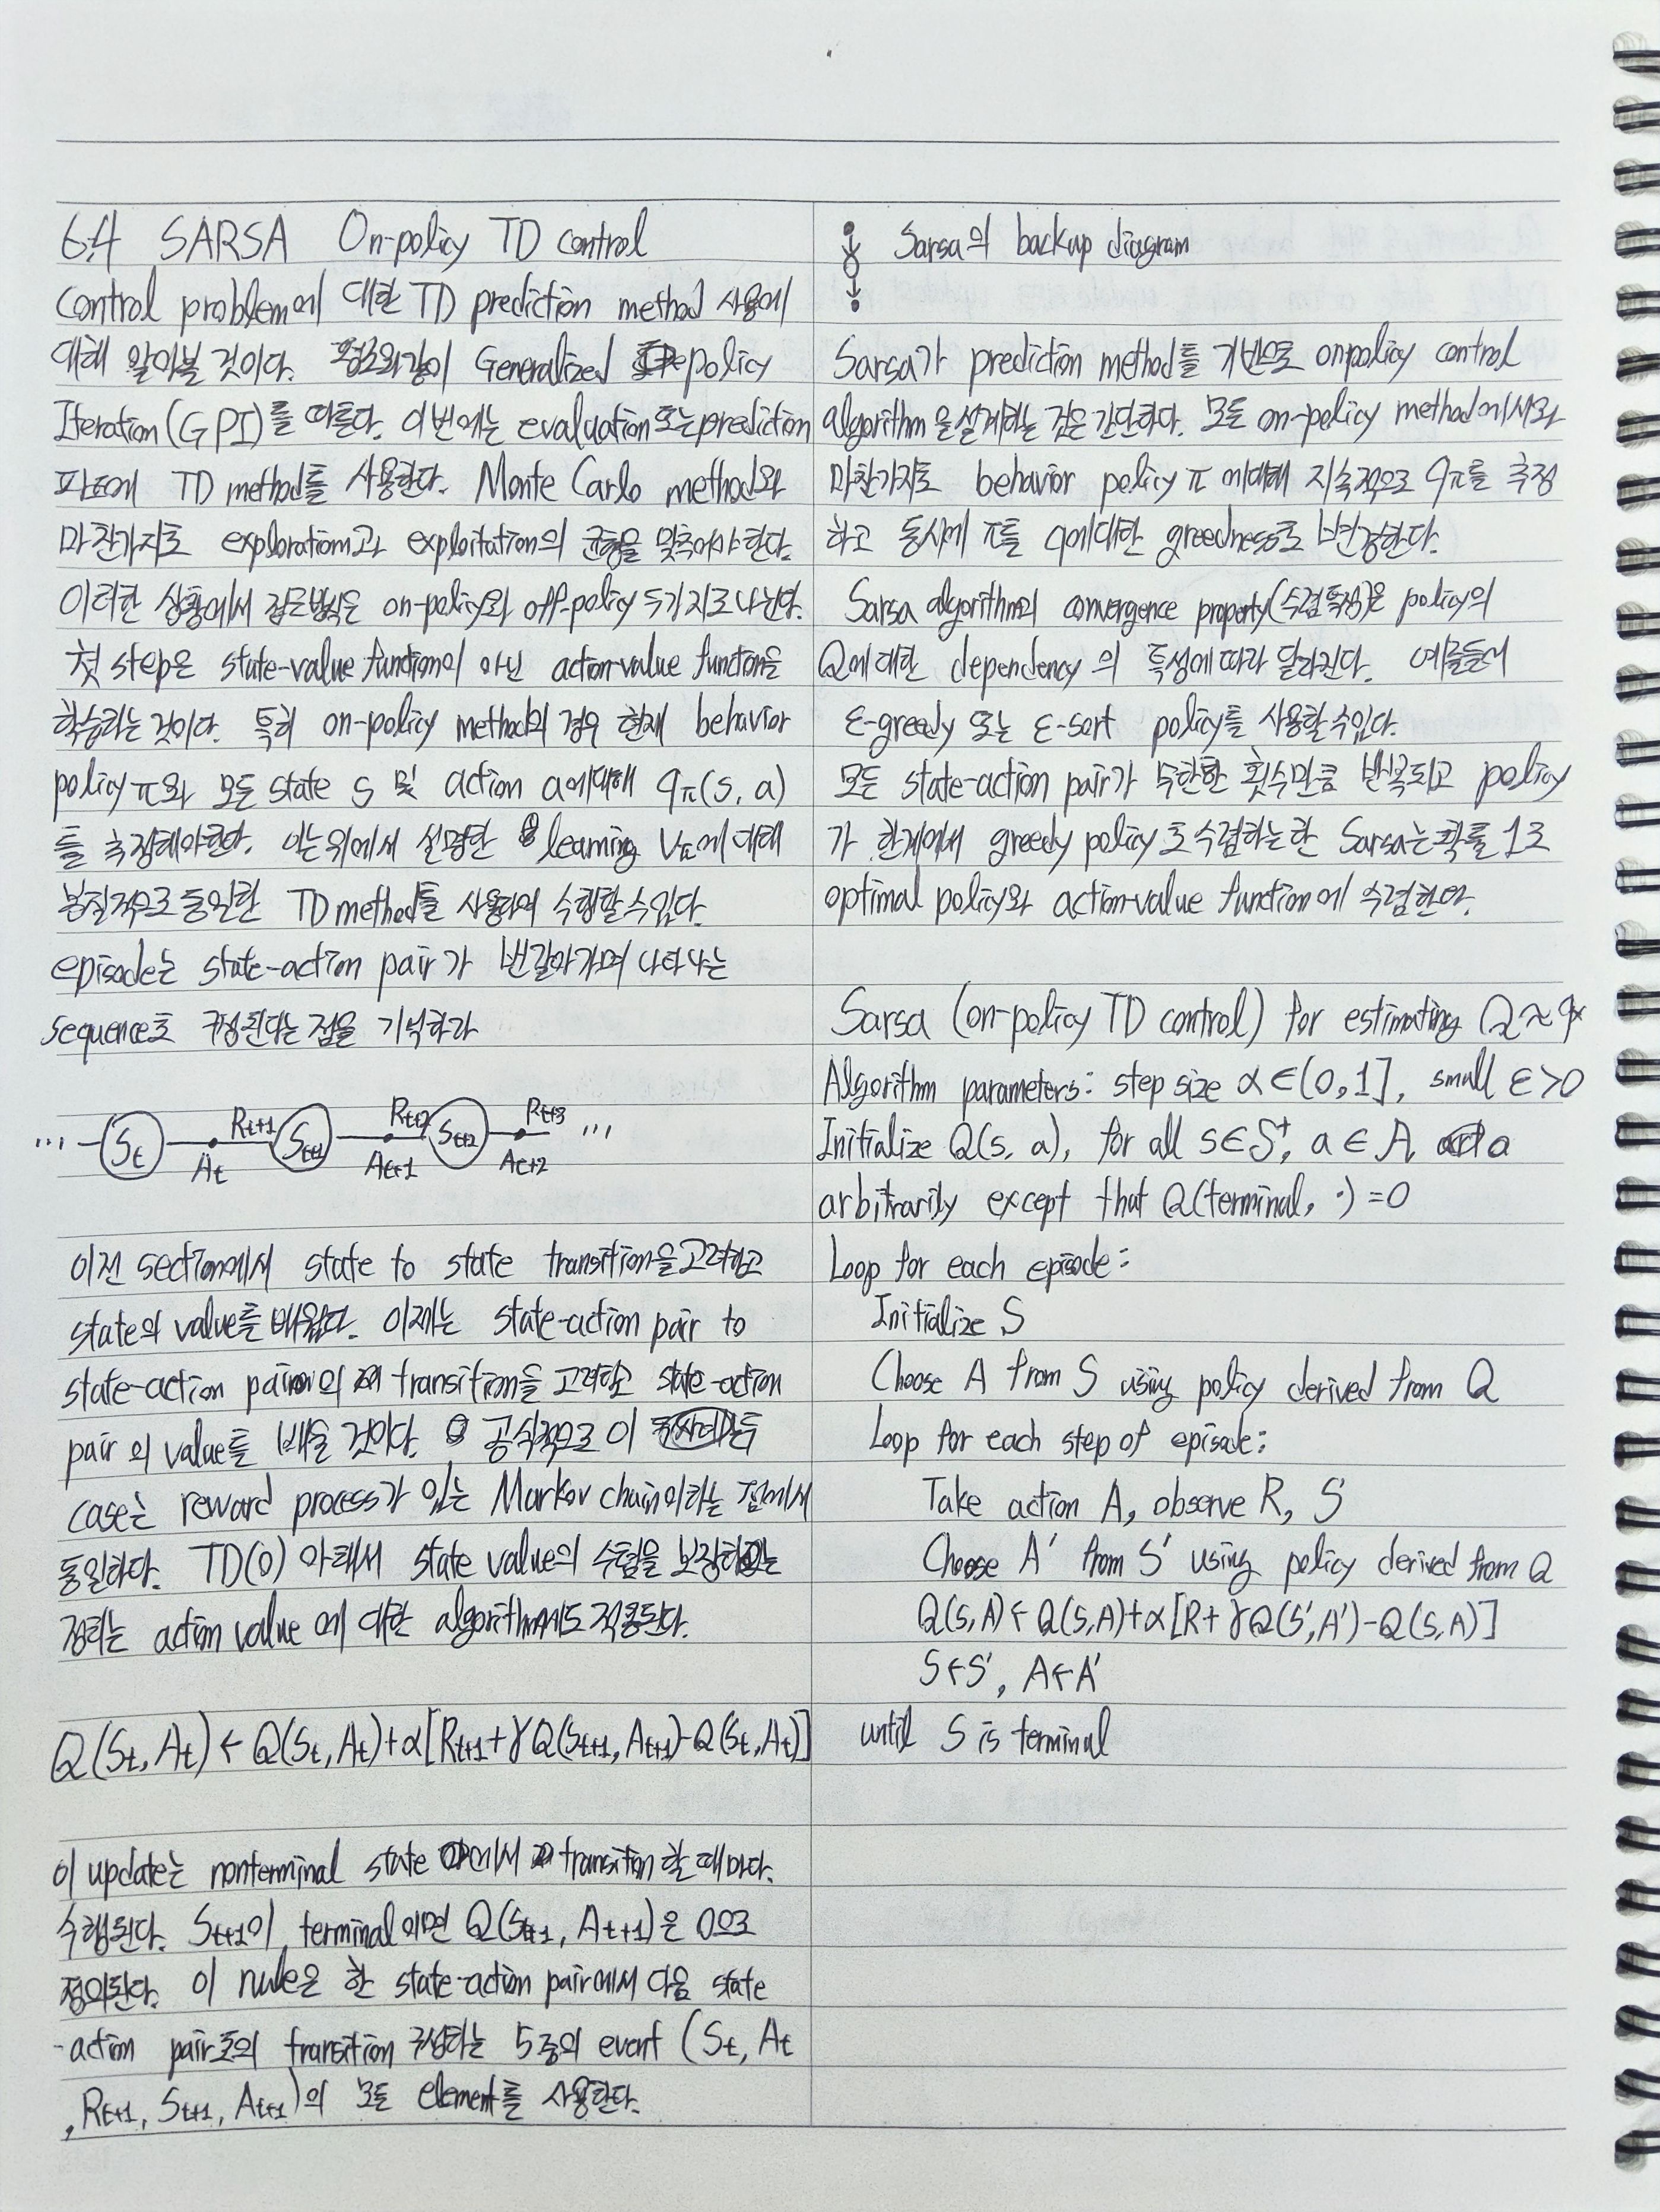 6.4 SARSA On-policy TD control
control problem에 대한 TD prediction method 사용에
대해 알아볼 것이다. Generalized policy
Iteration(GPI)를 따른다. 이번에는 evaluation 또는 prediction
파트에 TD method를 사용한다. Monte Carlo method와
마찬가지로 exploration과 exploitation의 균형을 맞춰야 한다.
이러한 상황에서 접근법식은 on-policy와 off-policy 두가지로 나뉜다.
첫 step은 state-value function이 아닌 action-value function을
학습하는 것이다. 특히 on-policy method의 경우 현재 behavior
policy π와 모든 state s 및 action a에 대해 qπ(s, a)
를 추정해야한다. 이는 위에서 설명한 learning Vπ에 대해
본질적으로 동일한 TD method를 사용하여 수행할 수 있다.
episode는 state-action pair가 번갈아가며 나타나는
sequence로 구성된다는 점을 기억하라
... St At Rt+1 St+1 At+1 Rt+2 St+2 At+2 Rt+3 ...
이전 section에서 state to state transition을 고려하고
state의 value를 배웠다. 이제는 state-action pair to
state-action pair의 transition을 고려하고 state-action
pair의 value를 배울 것이다. 공식적으로 이
case는 reward process가 있는 Markov chain이라는 점에서
동일하다. TD(0) 아래서 state value의 수렴을 보장하는
정리는 action value에 대한 algorithm에도 적용된다.
Q(St, At) ← Q(St, At)+α[Rt+1+γQ(St+1, At+1)-Q(St, At)]
이 update는 nonterminal state 에서 transition 할 때마다.
수행된다. St+1이 terminal이면 Q(St+1, At+1)은 0으로
정의된다. 이 rule은 한 state-action pair에서 다음 state
-action pair로의 transition 구성하는 5중의 event (St, At
, Rt+1, St+1, At+1)의 모든 element를 사용한다.
Sarsa의 backup diagram
Sarsa가 prediction method를 기반으로 onpolicy control
algorithm을 설계하는 것은 간단하다. 모든 on-policy method에서와
마찬가지로 behavior policy π에 대해 지속적으로 qπ를 추정
하고 동시에 π를 q에 대한 greedness로 변경한다.
Sarsa algorithm의 convergence property(수렴 특성)은 policy의
Q에 대한 dependency의 특성에 따라 달라진다. 예를들어
ε-greedy 또는 ε-sort policy를 사용할 수 있다.
모든 state-action pair가 무한한 횟수만큼 반복되고 policy
가 한계에서 greedy policy로 수렴하는 한 Sarsa는 확률 1로
optimal policy와 action-value function에 수렴한다.
Sarsa (on-policy TD control) for estimating Q≈q*
Algorithm parameters: step size α∈(0,1], small ε>0
Initialize Q(s, a), for all s∈S⁺, a∈A, a
arbitrarily except that Q(terminal, ·)=0
Loop for each episode:
Initialize S
Choose A from S using policy derived from Q
Loop for each step of episode:
Take action A, observe R, S'
Choose A' from S' using policy derived from Q
Q(S,A)←Q(S,A)+α[R+γQ(S',A')-Q(S,A)]
S←S', A←A'
until S is terminal